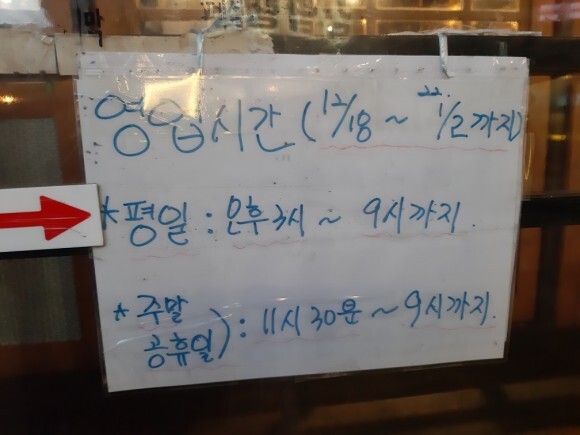 막
영업시간 (12/18 ~ 22. 1/2 까지)
* 평일 : 오후 3시 ~ 9시까지.
* 주말
공휴일) : 11시 30분 ~ 9시까지.